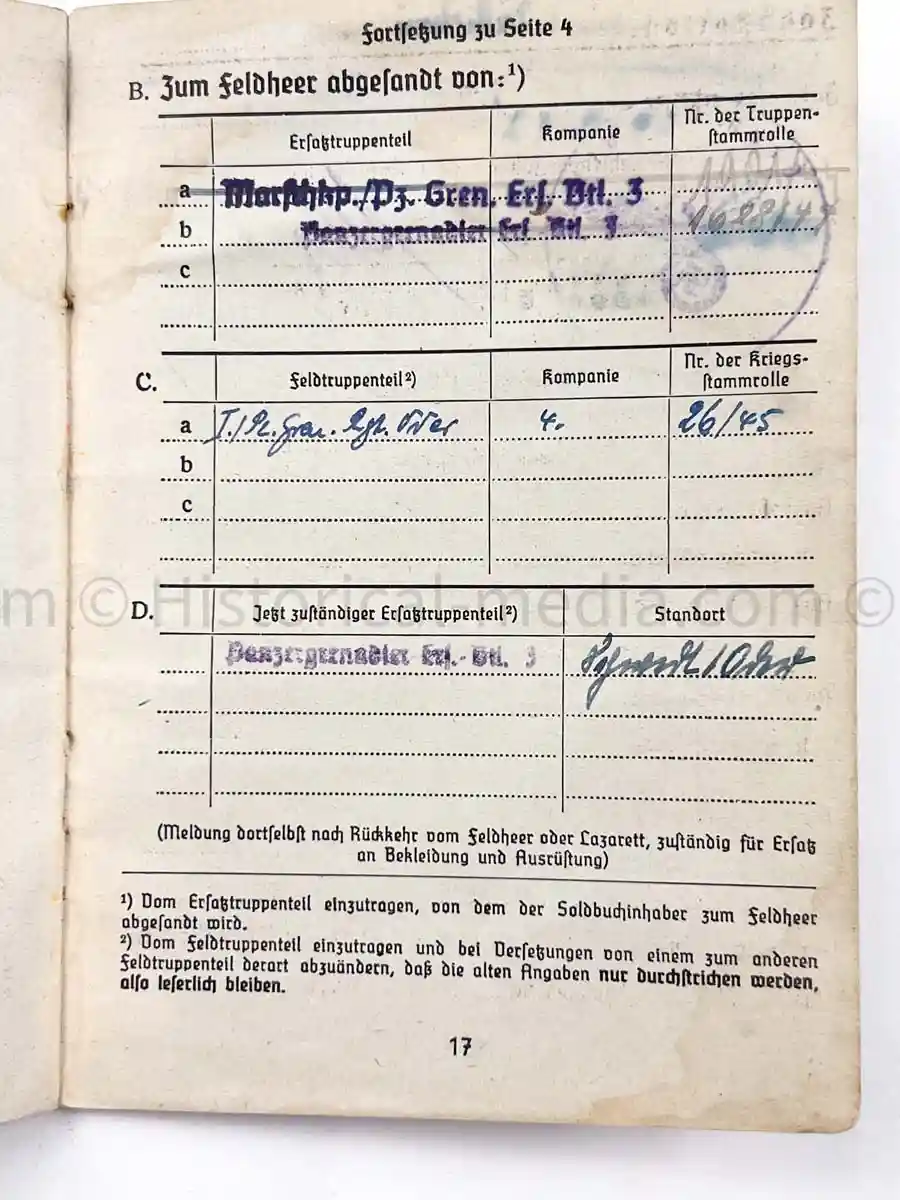 Fortsetzung zu Seite 4
B. Zum Feldheer abgesandt von:¹)
Ersatztruppenteil Kompanie Nr. der Truppen-
stammrolle
a Marschkp./Pz. Gren. Ers. Btl. 3
b Panzergrenadier Ers. Btl. 3
c
C. Feldtruppenteil²) Kompanie Nr. der Kriegs-
stammrolle
a I./Pz. Gren. Rgt. 4. 26/45
b
c
D. Jetzt zuständiger Ersatztruppenteil²) Standort
Panzergrenadier Ers.-Btl. 3 Schwedt/Oder
(Meldung dortselbst nach Rückkehr vom Feldheer oder Lazarett, zuständig für Ersatz
an Bekleidung und Ausrüstung)
¹) Vom Ersatztruppenteil einzutragen, von dem der Soldbuchinhaber zum Feldheer
abgesandt wird.
²) Vom Feldtruppenteil einzutragen und bei Versetzungen von einem zum anderen
Feldtruppenteil derart abzuändern, daß die alten Angaben nur durchstrichen werden,
also leserlich bleiben.
17
m © Historical-media.com ©